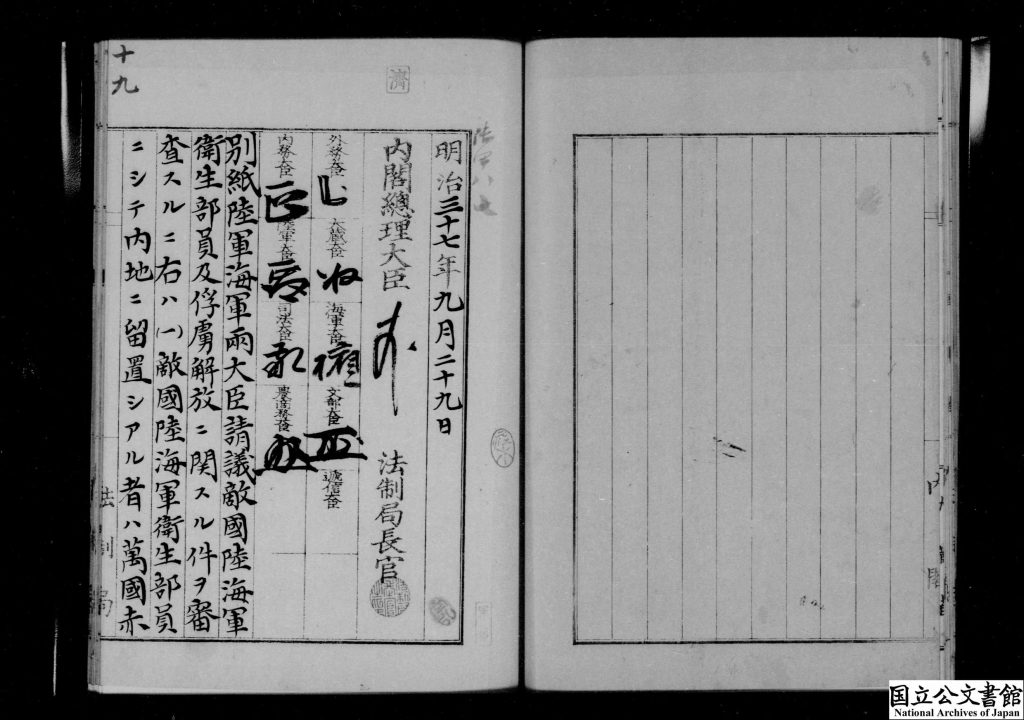 十九
濟
明治三十七年九月二十九日
内閣總理大臣
法制局長官
外務大臣
大藏大臣
海軍大臣
文部大臣
遞信大臣
内務大臣
陸軍大臣
司法大臣
農商務大臣
別紙陸軍海軍兩大臣請議敵國陸海軍
衛生部員及俘虜解放ニ関スル件ヲ審
査スルニ右ハ(一)敵國陸海軍衛生部員
ニシテ内地ニ留置シアル者ハ萬國赤
法制局
内閣
国立公文書館
National Archives of Japan